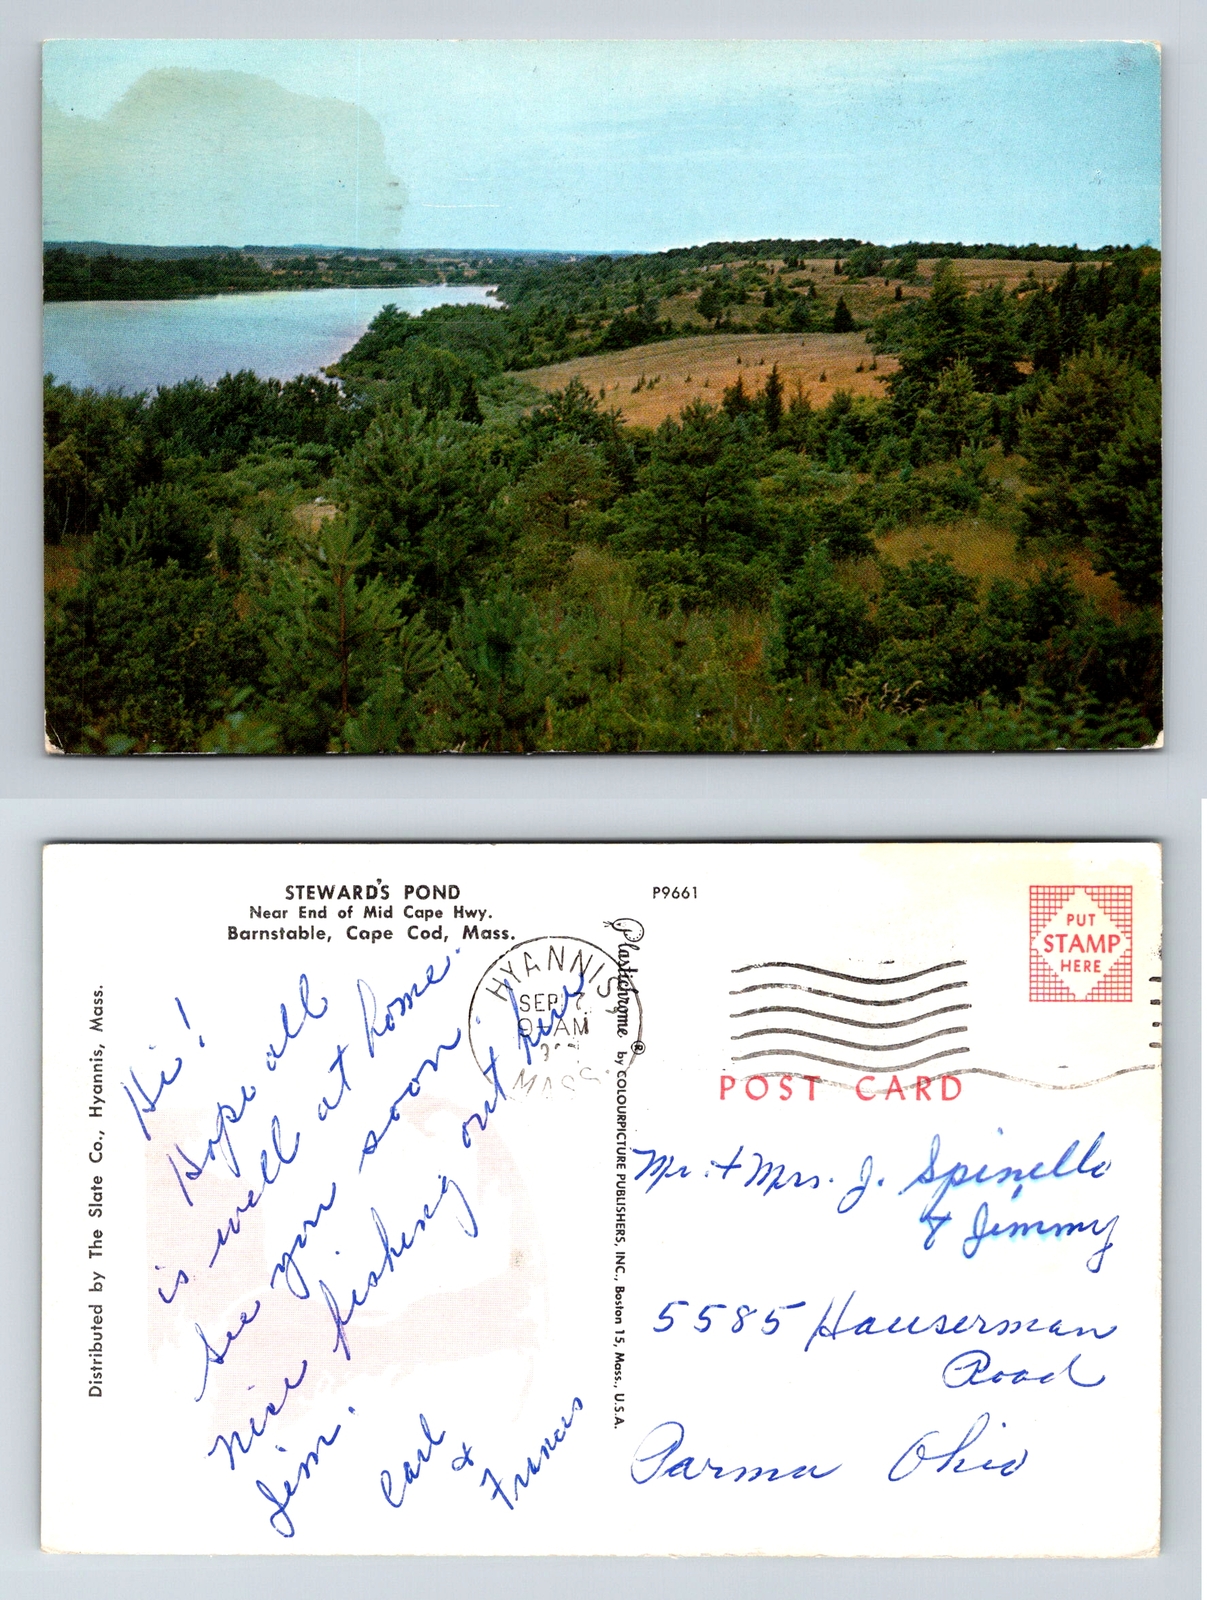 STEWARD'S POND
Near End of Mid Cape Hwy.
Barnstable, Cape Cod, Mass.
P9661
PUT
STAMP
HERE
HYANNIS,
SEP 7
AM
MASS.
POST CARD
Distributed by The Slate Co., Hyannis, Mass.
Plastichrome ® by COLOURPICTURE PUBLISHERS, INC., Boston 15, Mass., U.S.A.
Hi!
Hope all
is well at home.
See you soon.
Nice fishing out here
Jim.
Carl
&
Frances
Mr. & Mrs. J. Spinello
& Jimmy
5585 Hauserman
Road
Parma Ohio